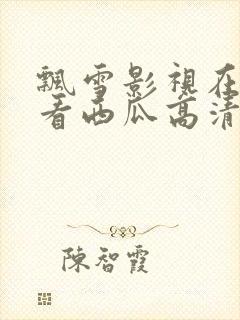 飄雪影視在
看西瓜高清
陳智霞